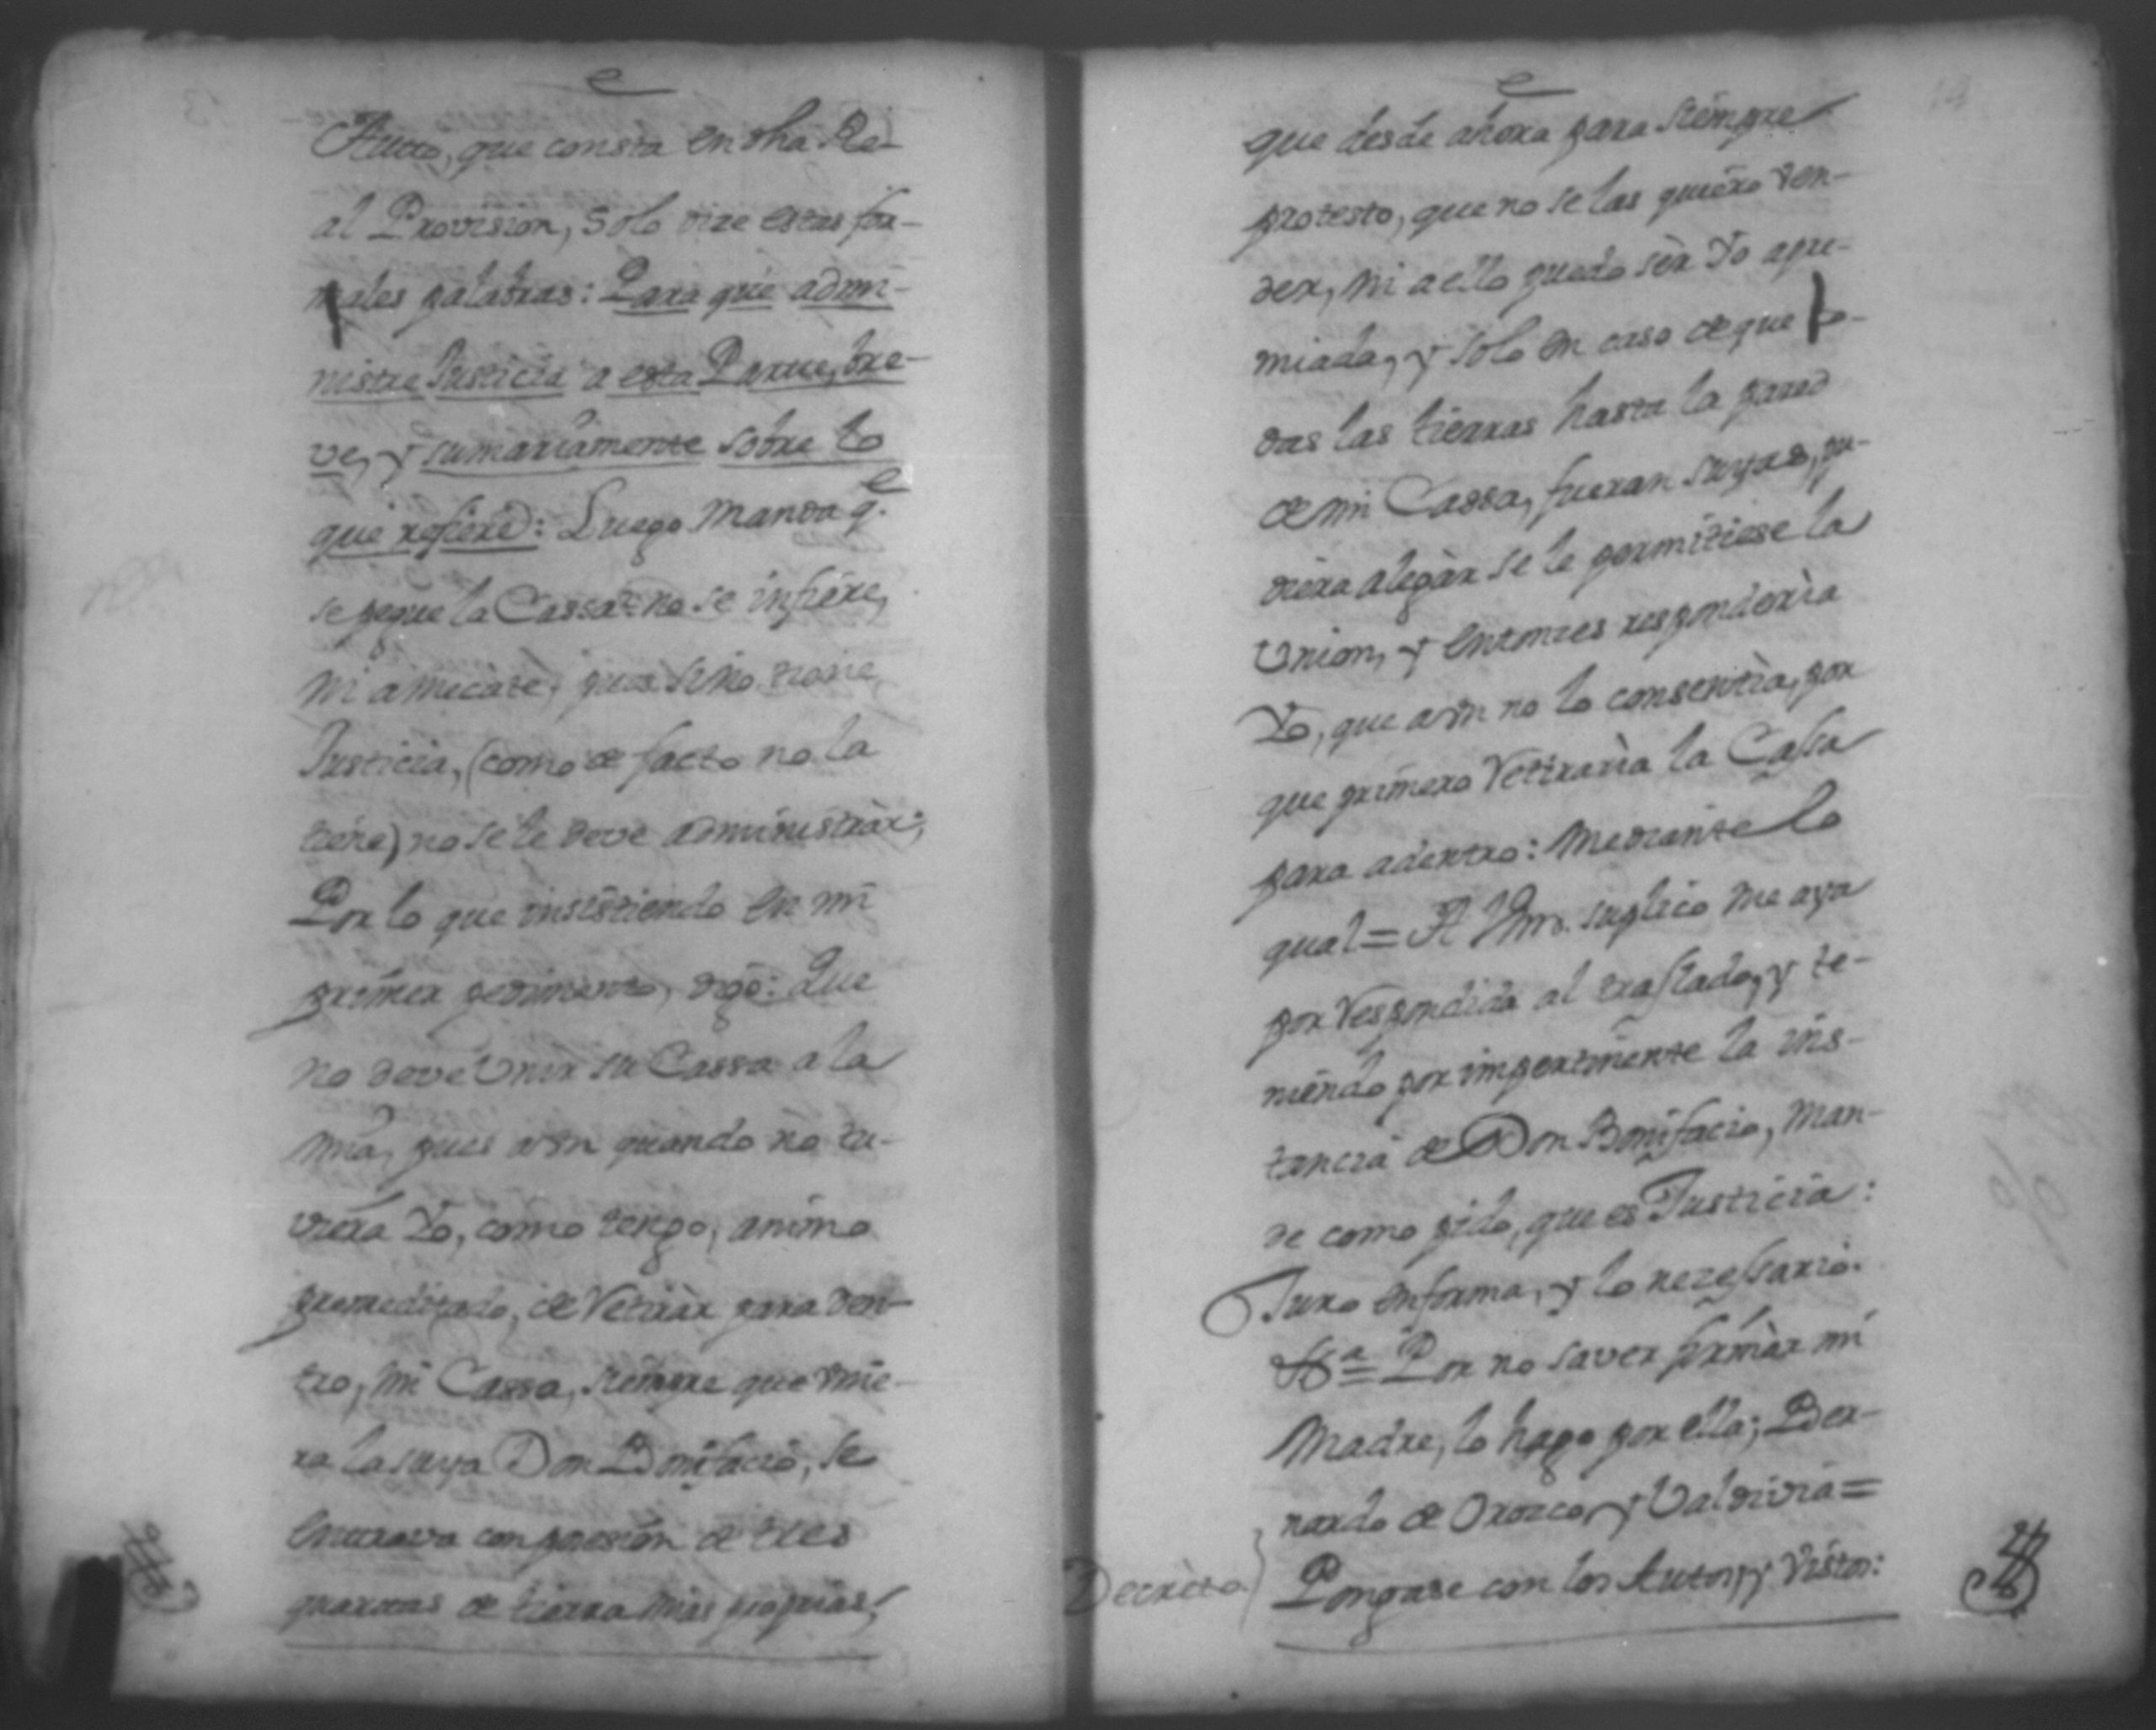 Autto, que consta en dha Re-
al Provision, solo dize estas for-
males palabras: Para que admi-
nistre Justicia a esta Parte, bre-
ve, y sumariamente sobre lo
que refiere: Luego manda q.e
se pegue la Cassa no se infiere,
ni a mecate; pues si no tiene
Justicia, (como de facto no la
tiene) no se le deve administrar;
Por lo que insistiendo en mi
primer pedimento, digo: Que
no deve Unir su Cassa a la
mia, pues aun quando no tu-
viera Yo, como tengo, animo
premeditado, de Retirar para den-
tro, mi Cassa, siempre que
ra la suya Don Bonifacio, se
entrava con porcion de tres
quartas de tierra mias proprias,
que desde ahora para siempre
protesto, que no se las quiero ven-
der, ni a ello puedo ser Yo apre-
miada, y solo en caso de que to-
das las tierras hasta la pared
de mi Cassa, fueran suyas, pu-
diera alegar se le permitiese la
Union, y entonces responderia
Yo, que aun no lo consentia, por
que primero Retiraria la Cassa
para adentro: Mediante lo
qual = A Vm. suplico me aya
por Respondida al traslado, y te-
niendo por impertinente la ins-
tancia de Don Bonifacio, man-
de como pido, que es Justicia:
Juro en forma, y lo nezessario.
&a = Por no saver firmar mi
Madre, lo hago por ella; Ber-
nardo de Orozco, y Valdivia =
Decreto } Pongase con los Autos, y Vistos: